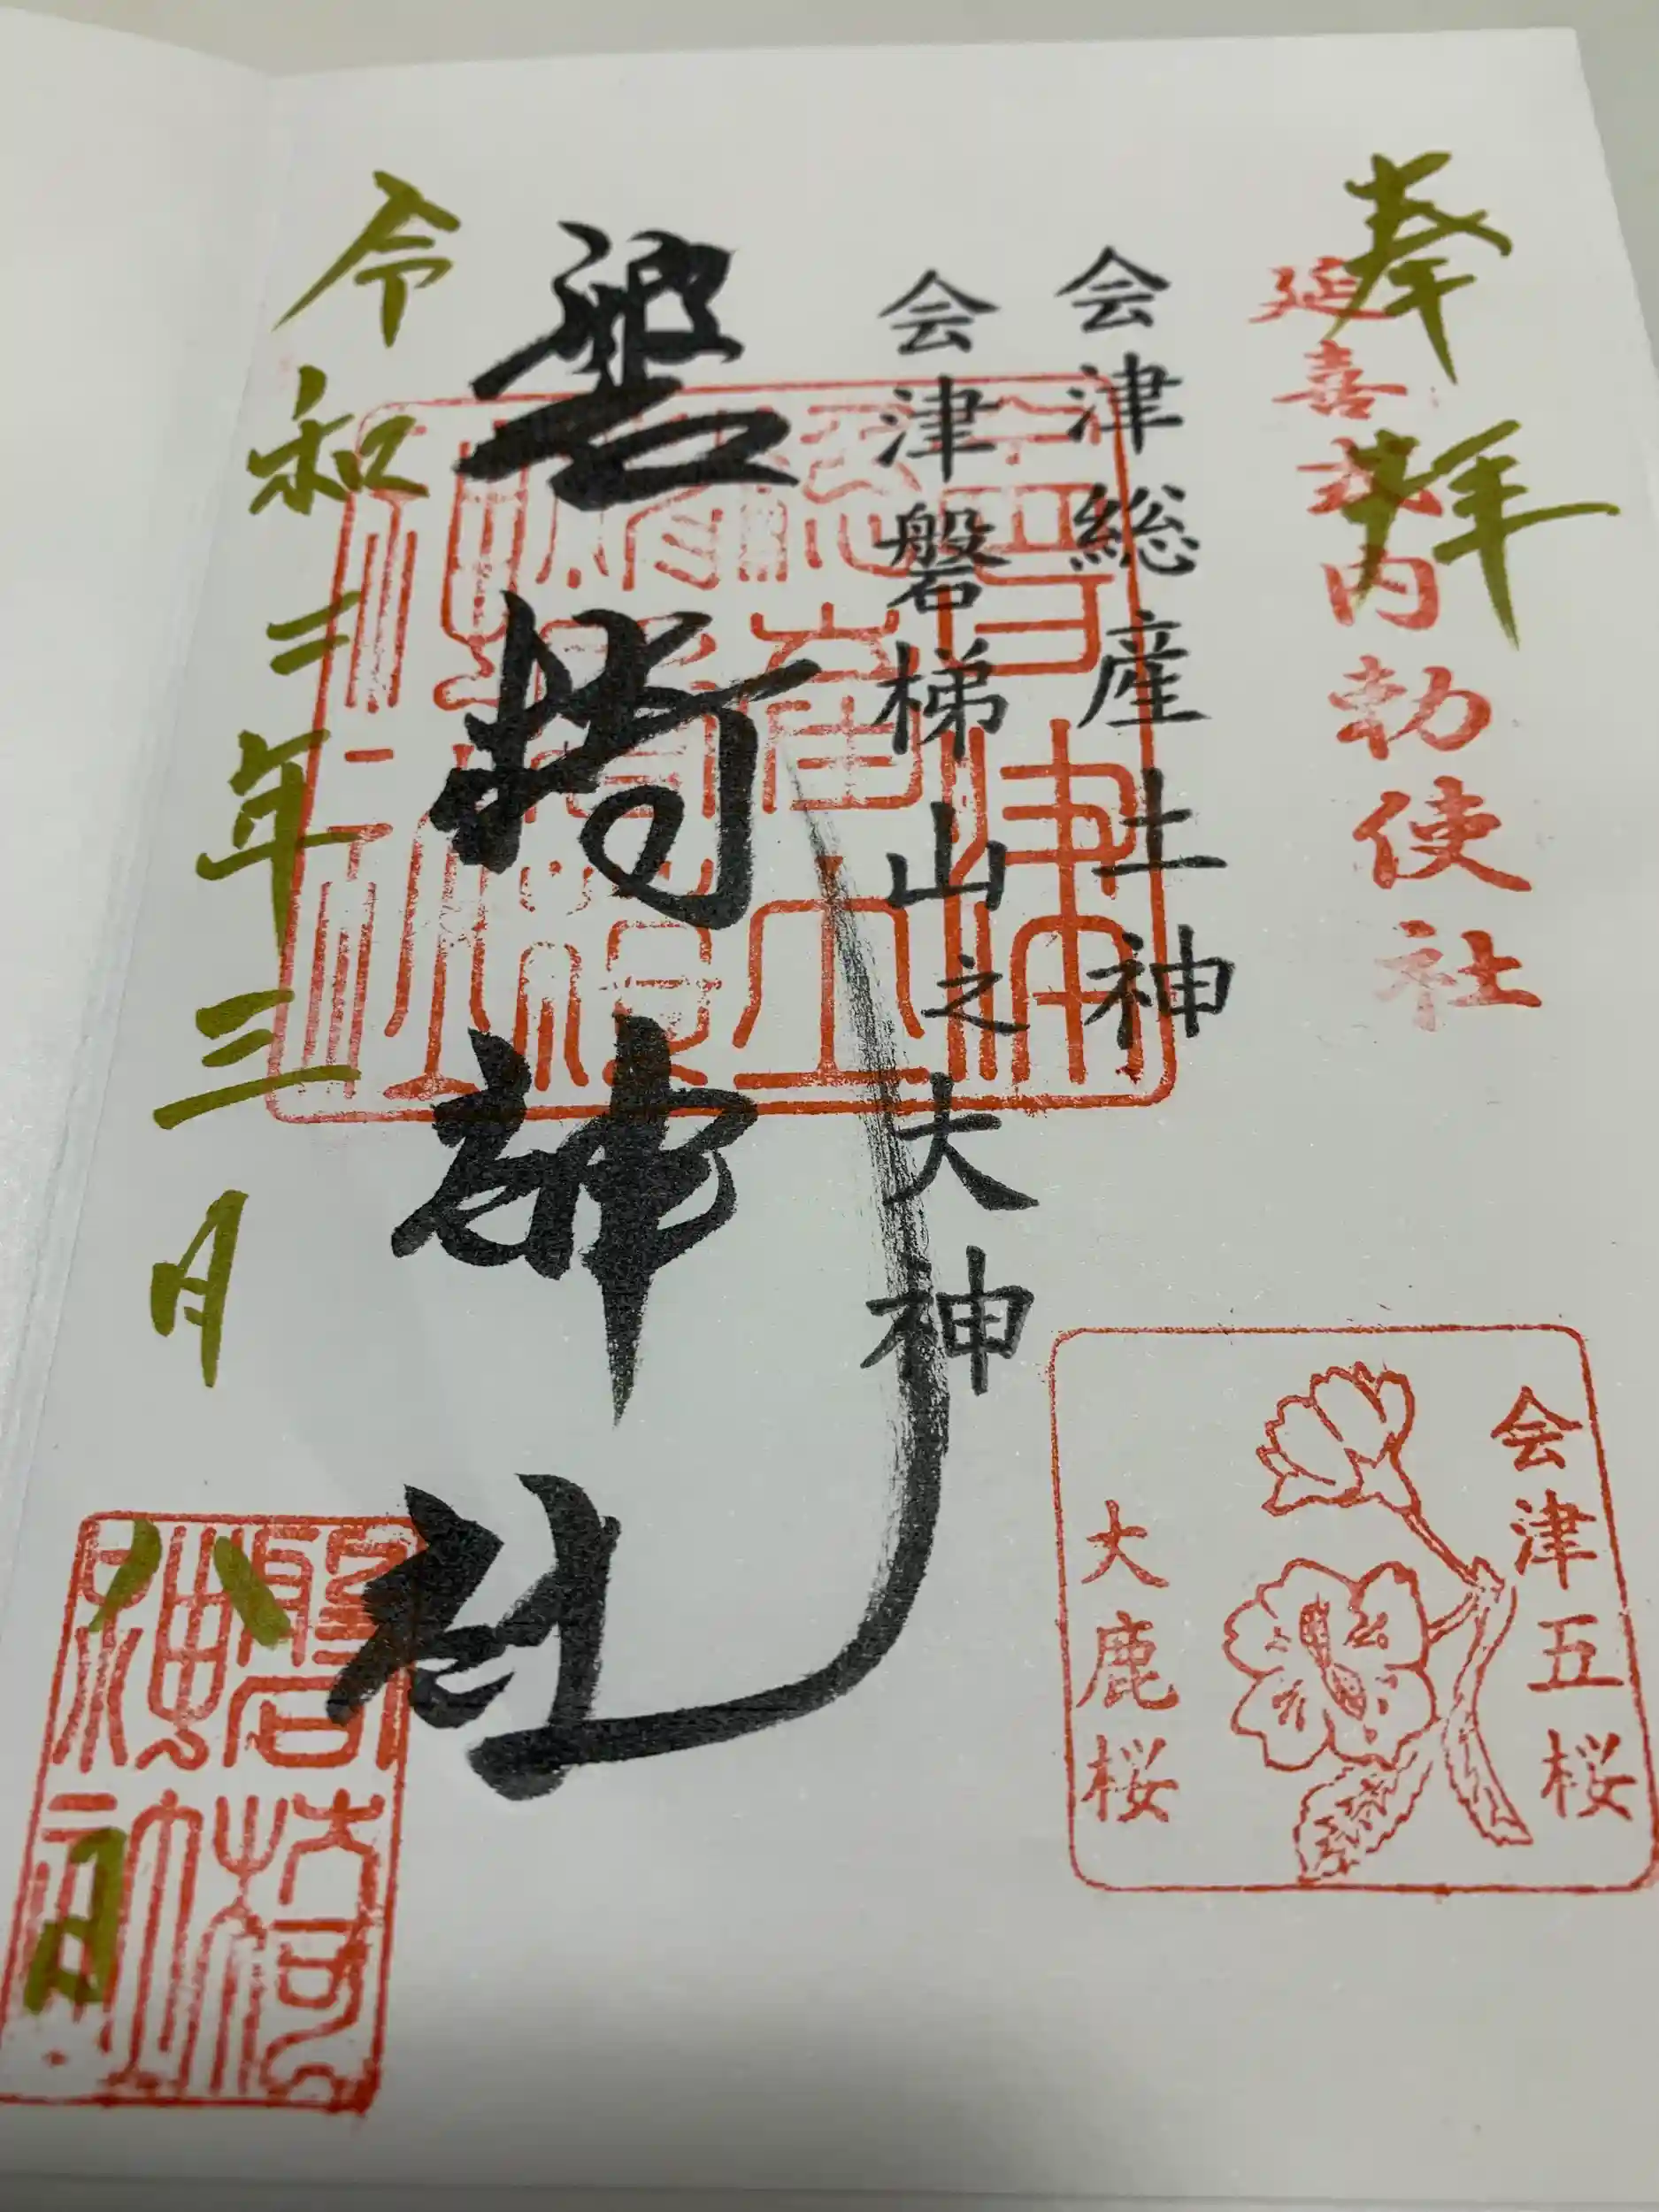 奉拝
延喜式内勅使社
会津総産土神
会津磐梯山之大神
磐椅神社
令和三年三月八日
会津五桜
大鹿桜
磐椅
神社